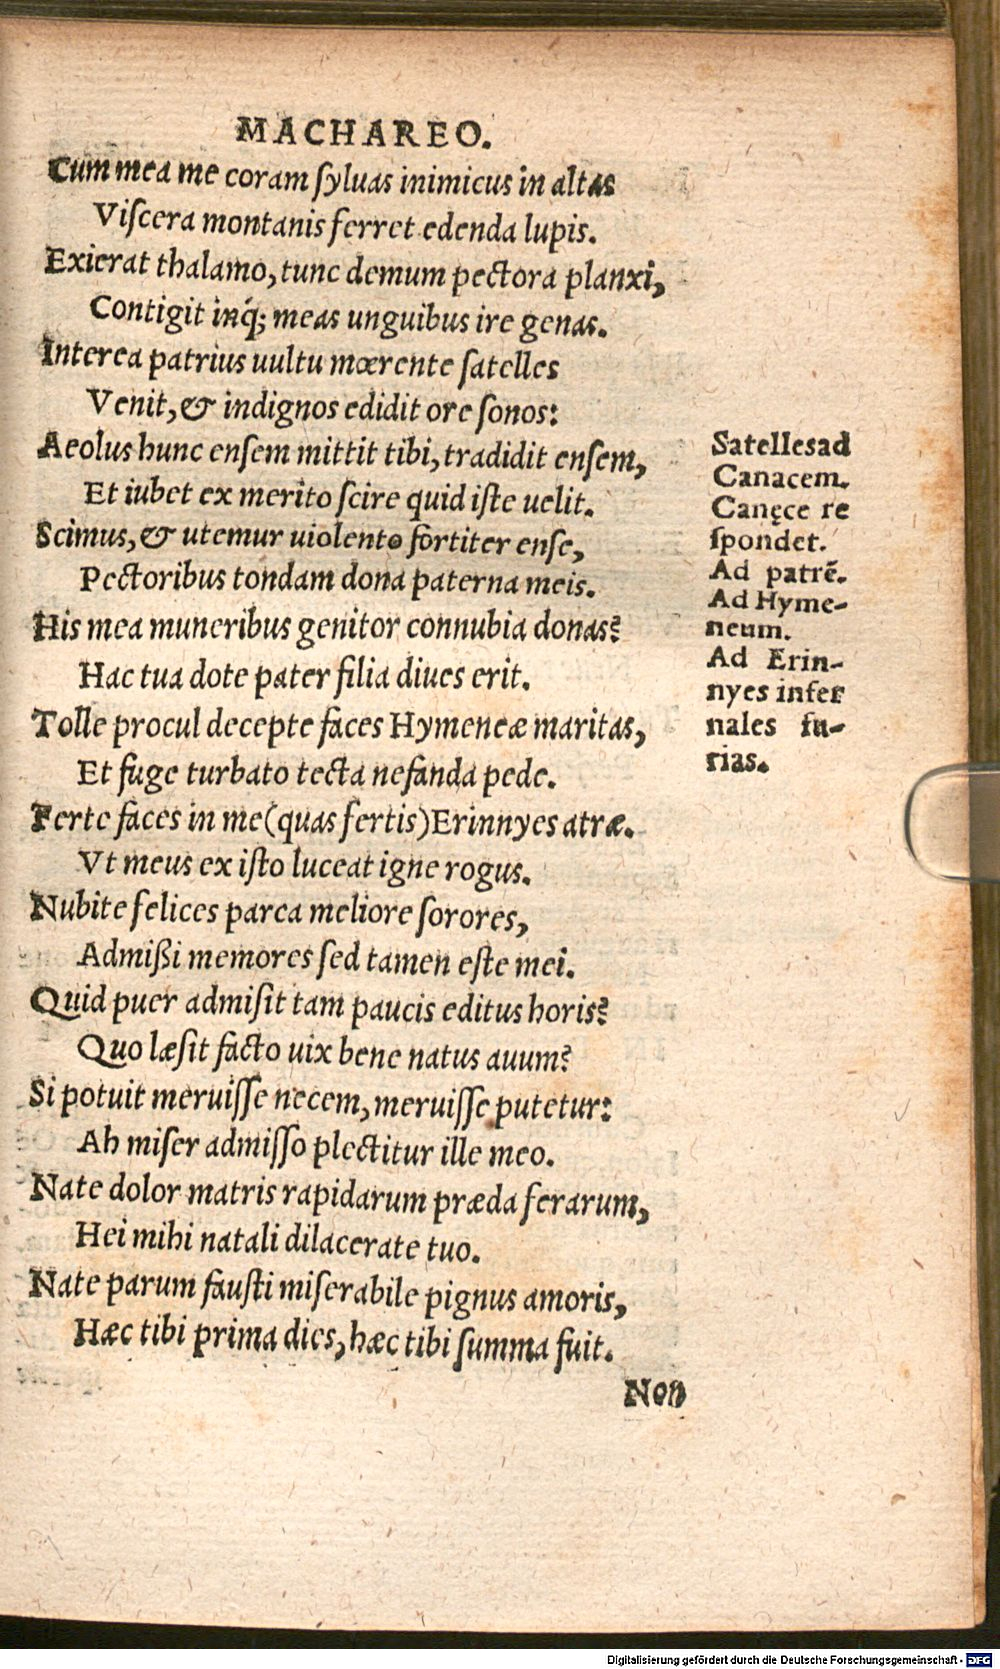 MACHAREO.
Cum mea me coram ſyluas inimicus in altas
Viſcera montanis ferret edenda lupis.
Exierat thalamo, tunc demum pectora planxi,
Contigit inq́; meas unguibus ire genas.
Interea patrius uultu mœrente ſatelles
Venit, & indignos edidit ore ſonos:
Aeolus hunc enſem mittit tibi, tradidit enſem,
Et iubet ex merito ſcire quid iſte uelit.
Scimus, & utemur uiolento fortiter enſe,
Pectoribus tondam dona paterna meis.
His mea muneribus genitor connubia donas?
Hac tua dote pater filia diues erit.
Tolle procul decepte faces Hymenęæ maritas,
Et fuge turbato tecta nefanda pede.
Ferte faces in me (quas fertis) Erinnyes atræ.
Vt meus ex iſto luceat igne rogus.
Nubite felices parca meliore ſorores,
Admiſſi memores ſed tamen eſte mei.
Quid puer admiſit tam paucis editus horis?
Quo læſit facto uix bene natus auum?
Si potuit meruiſſe necem, meruiſſe putetur:
Ah miſer admiſſo plectitur ille meo.
Nate dolor matris rapidarum præda ferarum,
Hei mihi natali dilacerate tuo.
Nate parum fauſti miſerabile pignus amoris,
Hæc tibi prima dies, hæc tibi ſumma fuit.
Non
Satelles ad
Canacem.
Canęce re
ſpondet.
Ad patrē.
Ad Hyme-
neum.
Ad Erin-
nyes infer
nales fu-
rias.
Digitalisierung gefördert durch die Deutsche Forschungsgemeinschaft - DFG